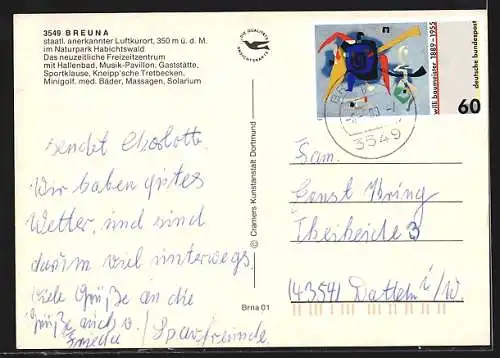 3549 BREUNA
staatl. anerkannter Luftkurort, 350 m ü. d. M.
im Naturpark Habichtswald
Das neuzeitliche Freizeitzentrum
mit Hallenbad, Musik-Pavillon, Gaststätte,
Sportklause, Kneipp'sche Tretbecken,
Minigolf, med. Bäder, Massagen, Solarium
sendet Charlotte.
Wir haben gutes
Wetter, und sind
darum viel unterwegs.
Viele Grüße an die
Grüße auch v. / Sparfreunde.
Frieda
DIE QUALITÄTS
ANSICHTSKARTE
© Cramers Kunstanstalt Dortmund
Brna 01
willi baumeister 1889-1955
deutsche bundespost
60
3549
Fam.
Ernst Kring
Theiheide 3
(4354) Datteln i/W.